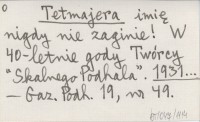 Tetmajera imię
nigdy nie zaginie! W
40-letnie gody Twórcy
"Skalnego Podhala". 1931...
— Gaz. Podh. 19, nr 49.